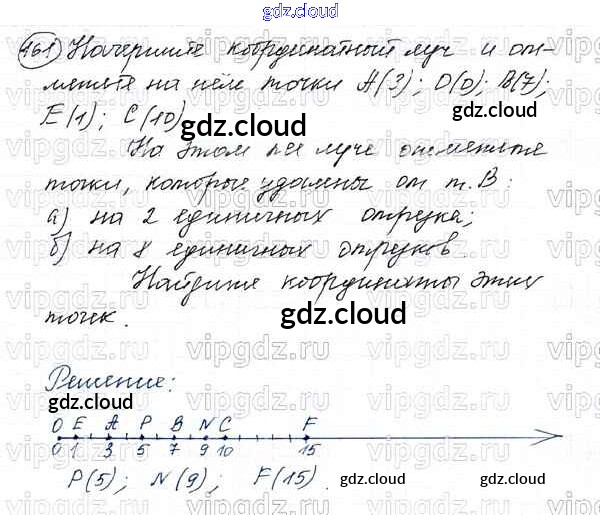 gdz.cloud
161) Начертите координатный луч и от-
метьте на нём точки A(3); O(0); B(7);
E(1); C(10)
gdz.cloud
На этом же луче отметьте
точки, которые удалены от т. B:
gdz.cloud
а) на 2 единичных отрезка;
б) на 8 единичных отрезков.
Найдите координаты этих
точек.
gdz.cloud
Решение:
gdz.cloud
O E A P B N C F
0 1 3 5 7 9 10 15
P(5); N(9); F(15).
gdz.cloud gdz.cloud gdz.cloud
vipgdz.ru